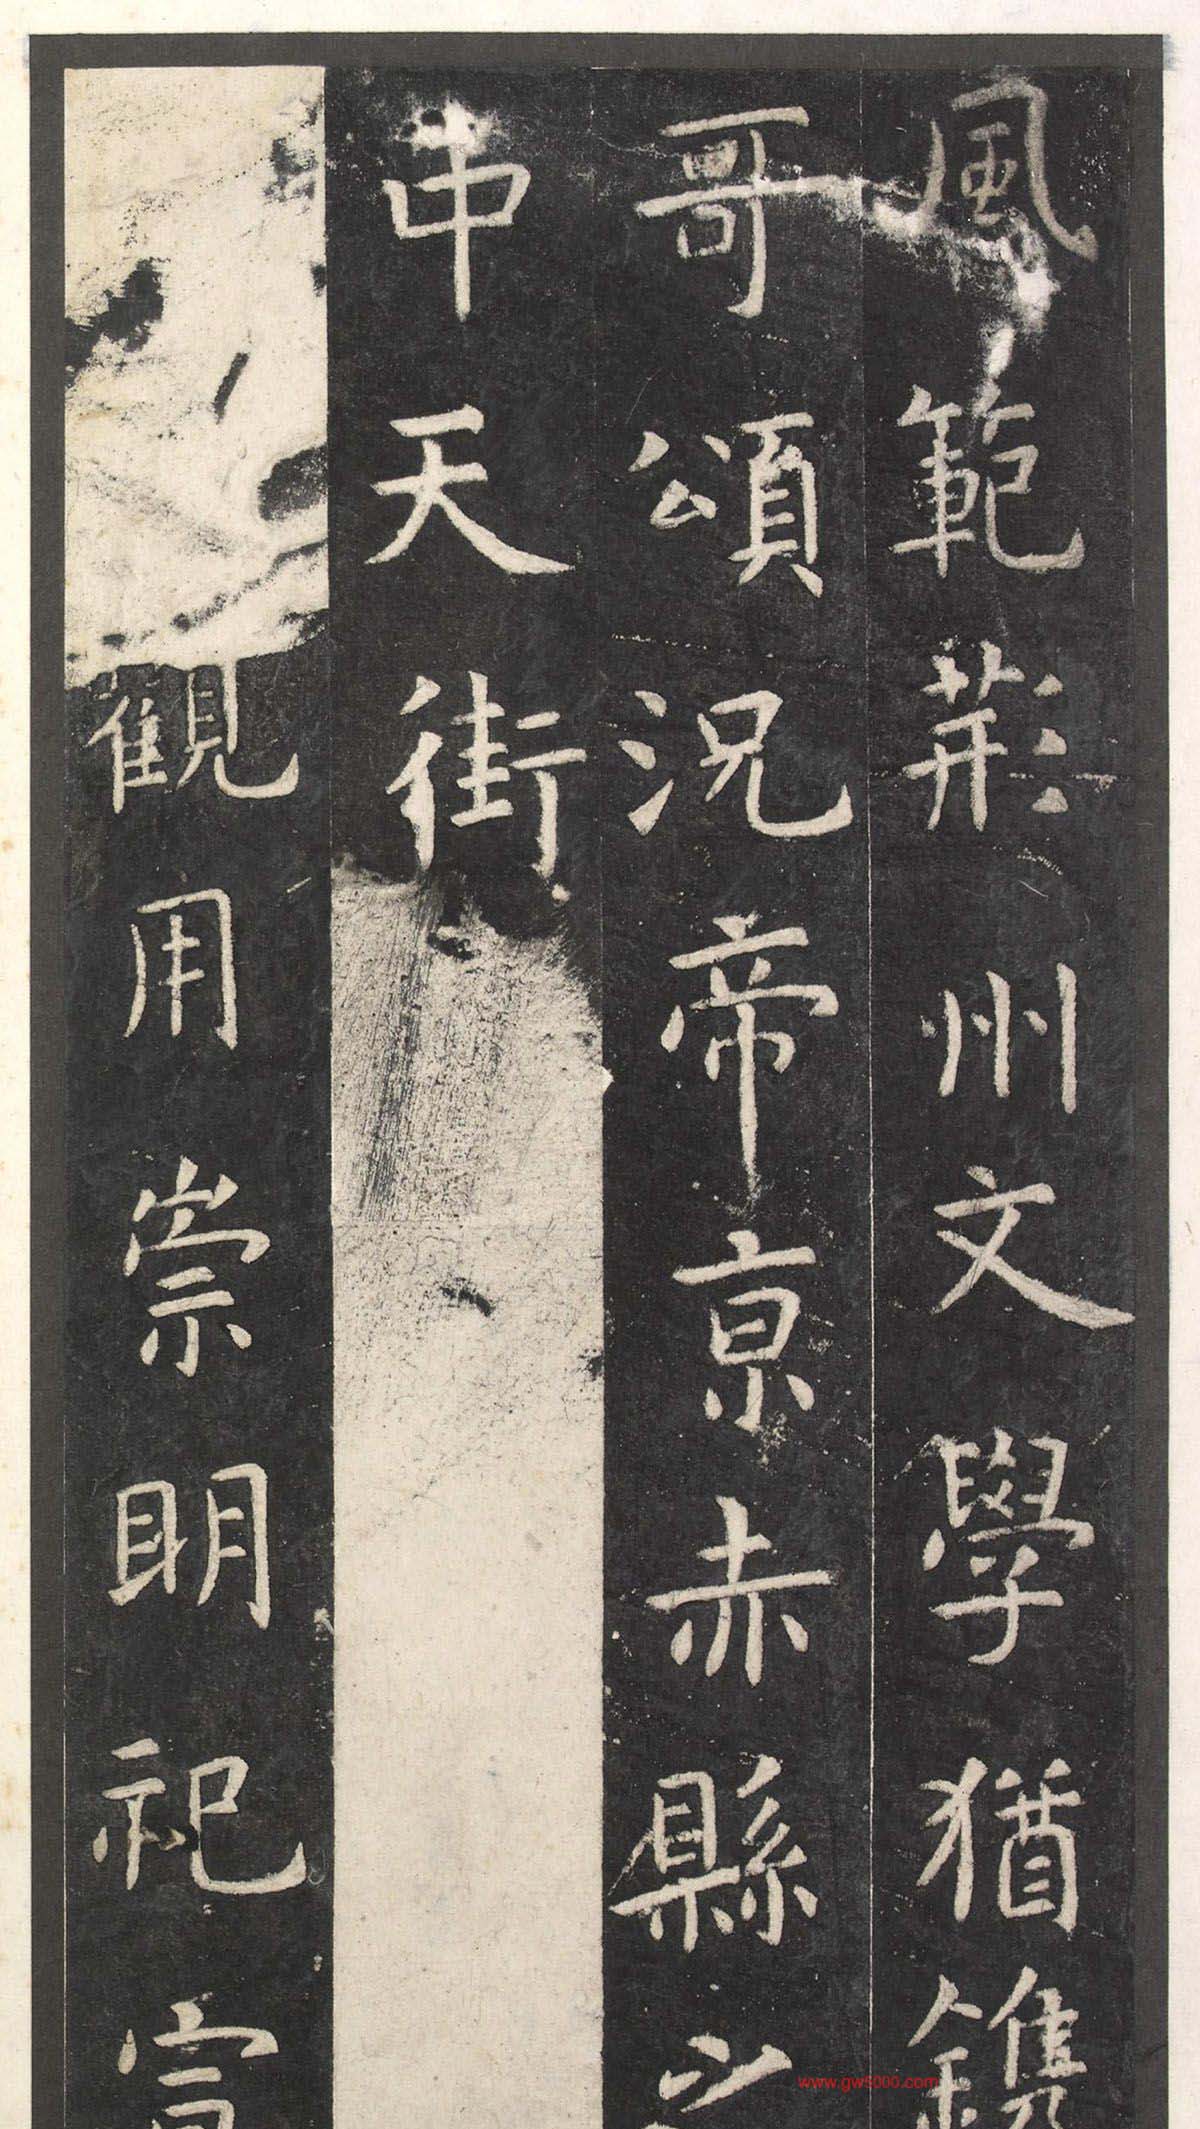 風範荊州文學猶鐫
哥頌況帝京赤縣之
中天街
觀用崇明祀宣
www.gw5000.com